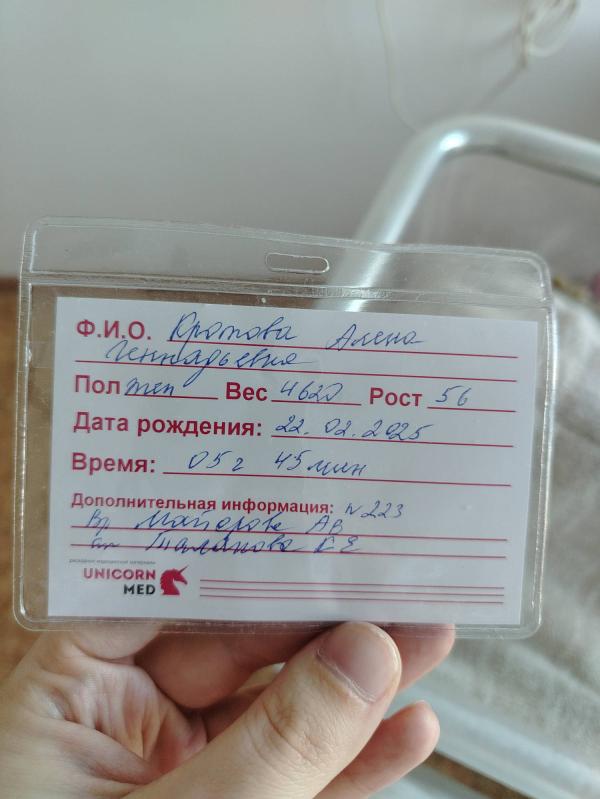 Ф.И.О. Кротова Алена
Геннадьевна
Пол жен Вес 4620 Рост 56
Дата рождения: 22.02.2025
Время: 05 г 45 мин
Дополнительная информация: N 223
Вр Майорова АВ
Таланова К Е
расходные медицинские материалы
UNICORN
MED